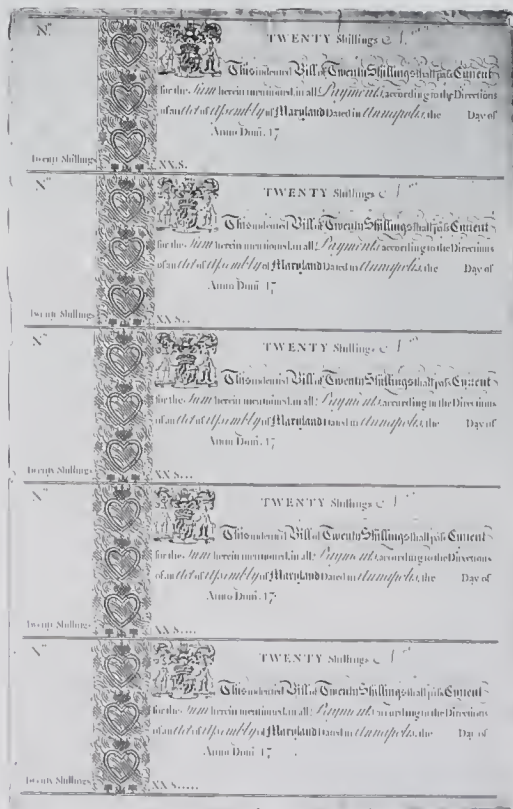 No.
TWENTY Shillings
This indented Bill of Twenty Shillings shall pass Current
for the Sum herein mentioned, in all Payments, according to the Directions
of an Act of Assembly of Maryland Dated in Annapolis, the Day of
Anno Domi. 17
Twenty Shillings XX.S.
No.
TWENTY Shillings
This indented Bill of Twenty Shillings shall pass Current
for the Sum herein mentioned, in all Payments, according to the Directions
of an Act of Assembly of Maryland Dated in Annapolis, the Day of
Anno Domi. 17
Twenty Shillings XX S...
No.
TWENTY Shillings
This indented Bill of Twenty Shillings shall pass Current
for the Sum herein mentioned, in all Payments, according to the Directions
of an Act of Assembly of Maryland Dated in Annapolis, the Day of
Anno Domi. 17
Twenty Shillings XX S....
No.
TWENTY Shillings
This indented Bill of Twenty Shillings shall pass Current
for the Sum herein mentioned, in all Payments, according to the Directions
of an Act of Assembly of Maryland Dated in Annapolis, the Day of
Anno Domi. 17
Twenty Shillings XX S....
No.
TWENTY Shillings
This indented Bill of Twenty Shillings shall pass Current
for the Sum herein mentioned, in all Payments, according to the Directions
of an Act of Assembly of Maryland Dated in Annapolis, the Day of
Anno Domi. 17
Twenty Shillings XX S.....